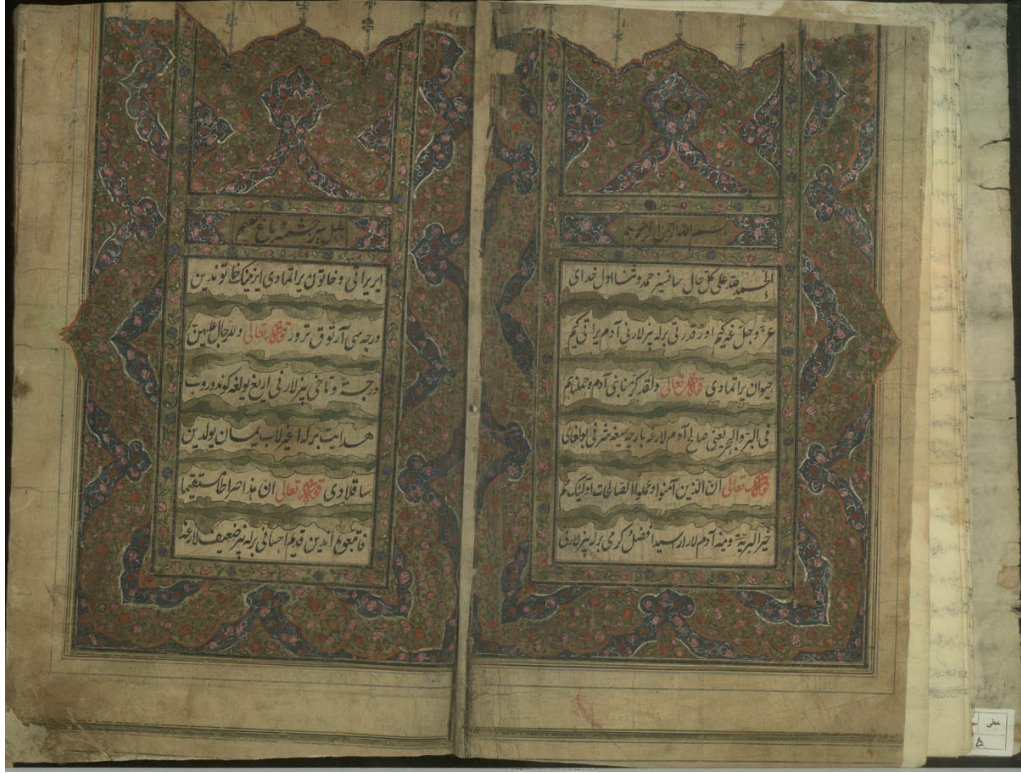 بسم الله الرحمن الرحیم
الحمد لله علی کل حال سانسیز حمد و ثنا اول خدای
عز و جل غه کم اوز قدرتی برله بیزلارنی آدم یراتتی کم
حیوان یراتمادی قوله تعالی ولقد کرمنا بنی آدم وحملناهم
فی البر والبحر یعنی صالح آدم لارغه بارچه سغه شرفی بولغای
قوله تعالی ان الذین آمنوا وعملوا الصالحات اولئک هم
خیر البریة و مینه آدم لار اراسیدا فضل و کرمی برله بیزلارنی
ایر یراتی و خاتون یراتمادی ایرنینک خاتوندین
درجه سی آرتوق ترور قوله تعالی وللرجال علیهن
درجة و تاخی بیزلارنی اریغ یولغه کوندوروب
هدایت برله اغیرلاب یمان یولدین
ساقلادی قوله تعالی ان هذا صراطی مستقیما
فاتبعوه اندین قدیم احسانی برله بیز ضعیف لارغه
خطی
۵